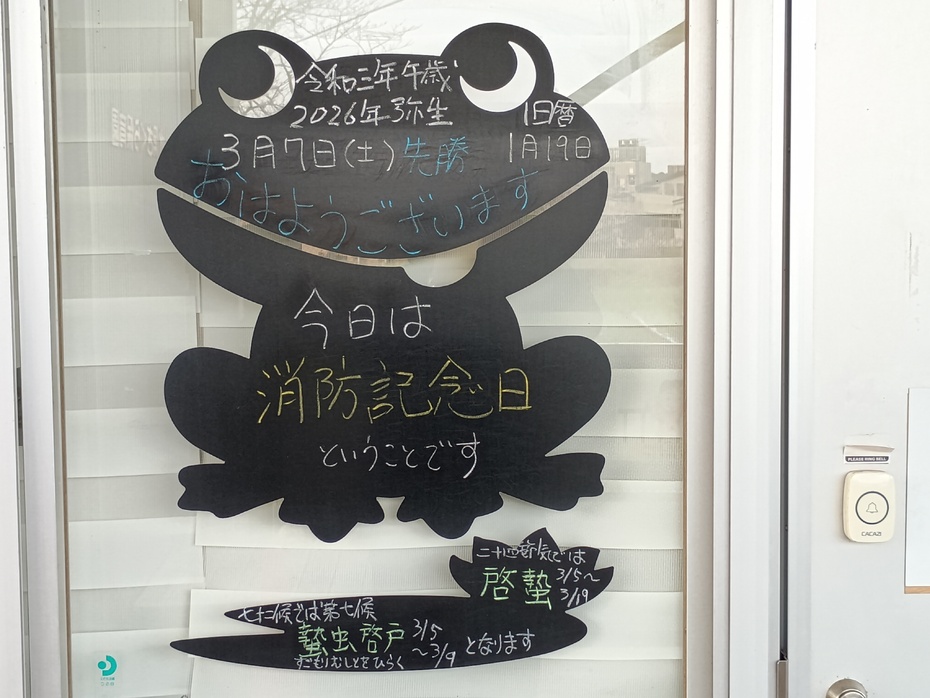 令和三年午歳
2026年弥生
旧暦
3月7日(土)先勝
1月19日
おはようございます
今日は
消防記念日
ということです
二十四節気では
啓蟄
3/5～
3/19
七十二候では第七候
蟄虫啓戸
3/5
～3/9
となります
すごもりむしとをひらく
PLEASE RING BELL
CACAZI